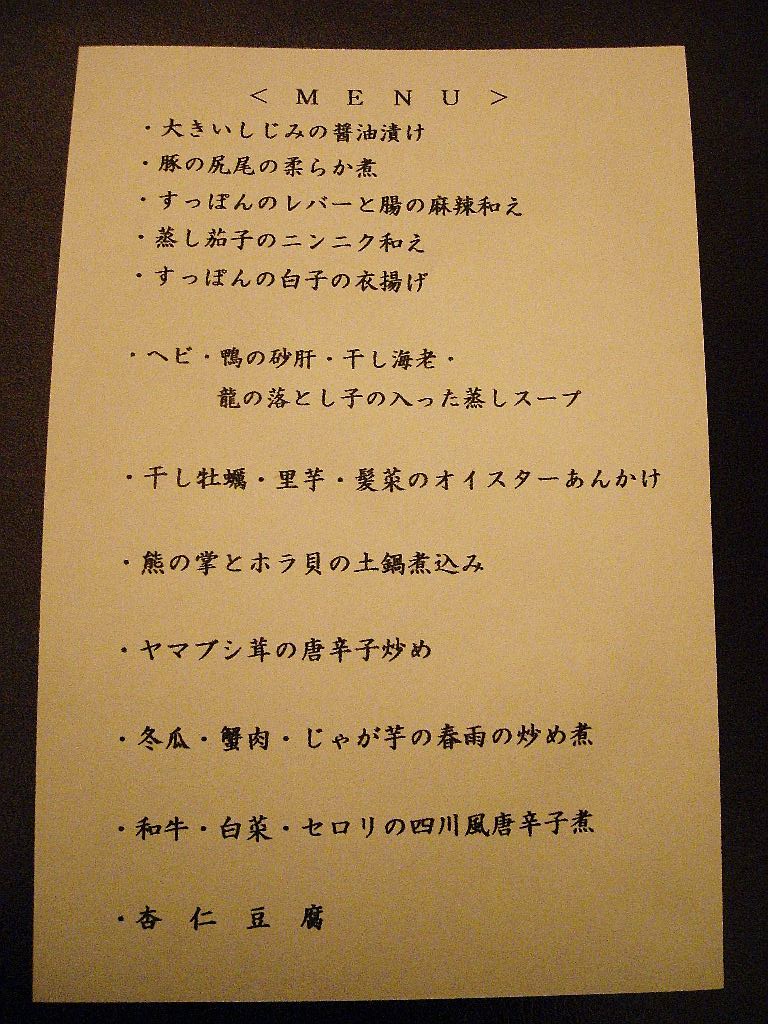 < M E N U >
・大きいしじみの醤油漬け
・豚の尻尾の柔らか煮
・すっぽんのレバーと腸の麻辣和え
・蒸し茄子のニンニク和え
・すっぽんの白子の衣揚げ
・ヘビ・鴨の砂肝・干し海老・
龍の落とし子の入った蒸しスープ
・干し牡蠣・里芋・髪菜のオイスターあんかけ
・熊の掌とホラ貝の土鍋煮込み
・ヤマブシ茸の唐辛子炒め
・冬瓜・蟹肉・じゃが芋の春雨の炒め煮
・和牛・白菜・セロリの四川風唐辛子煮
・杏 仁 豆 腐